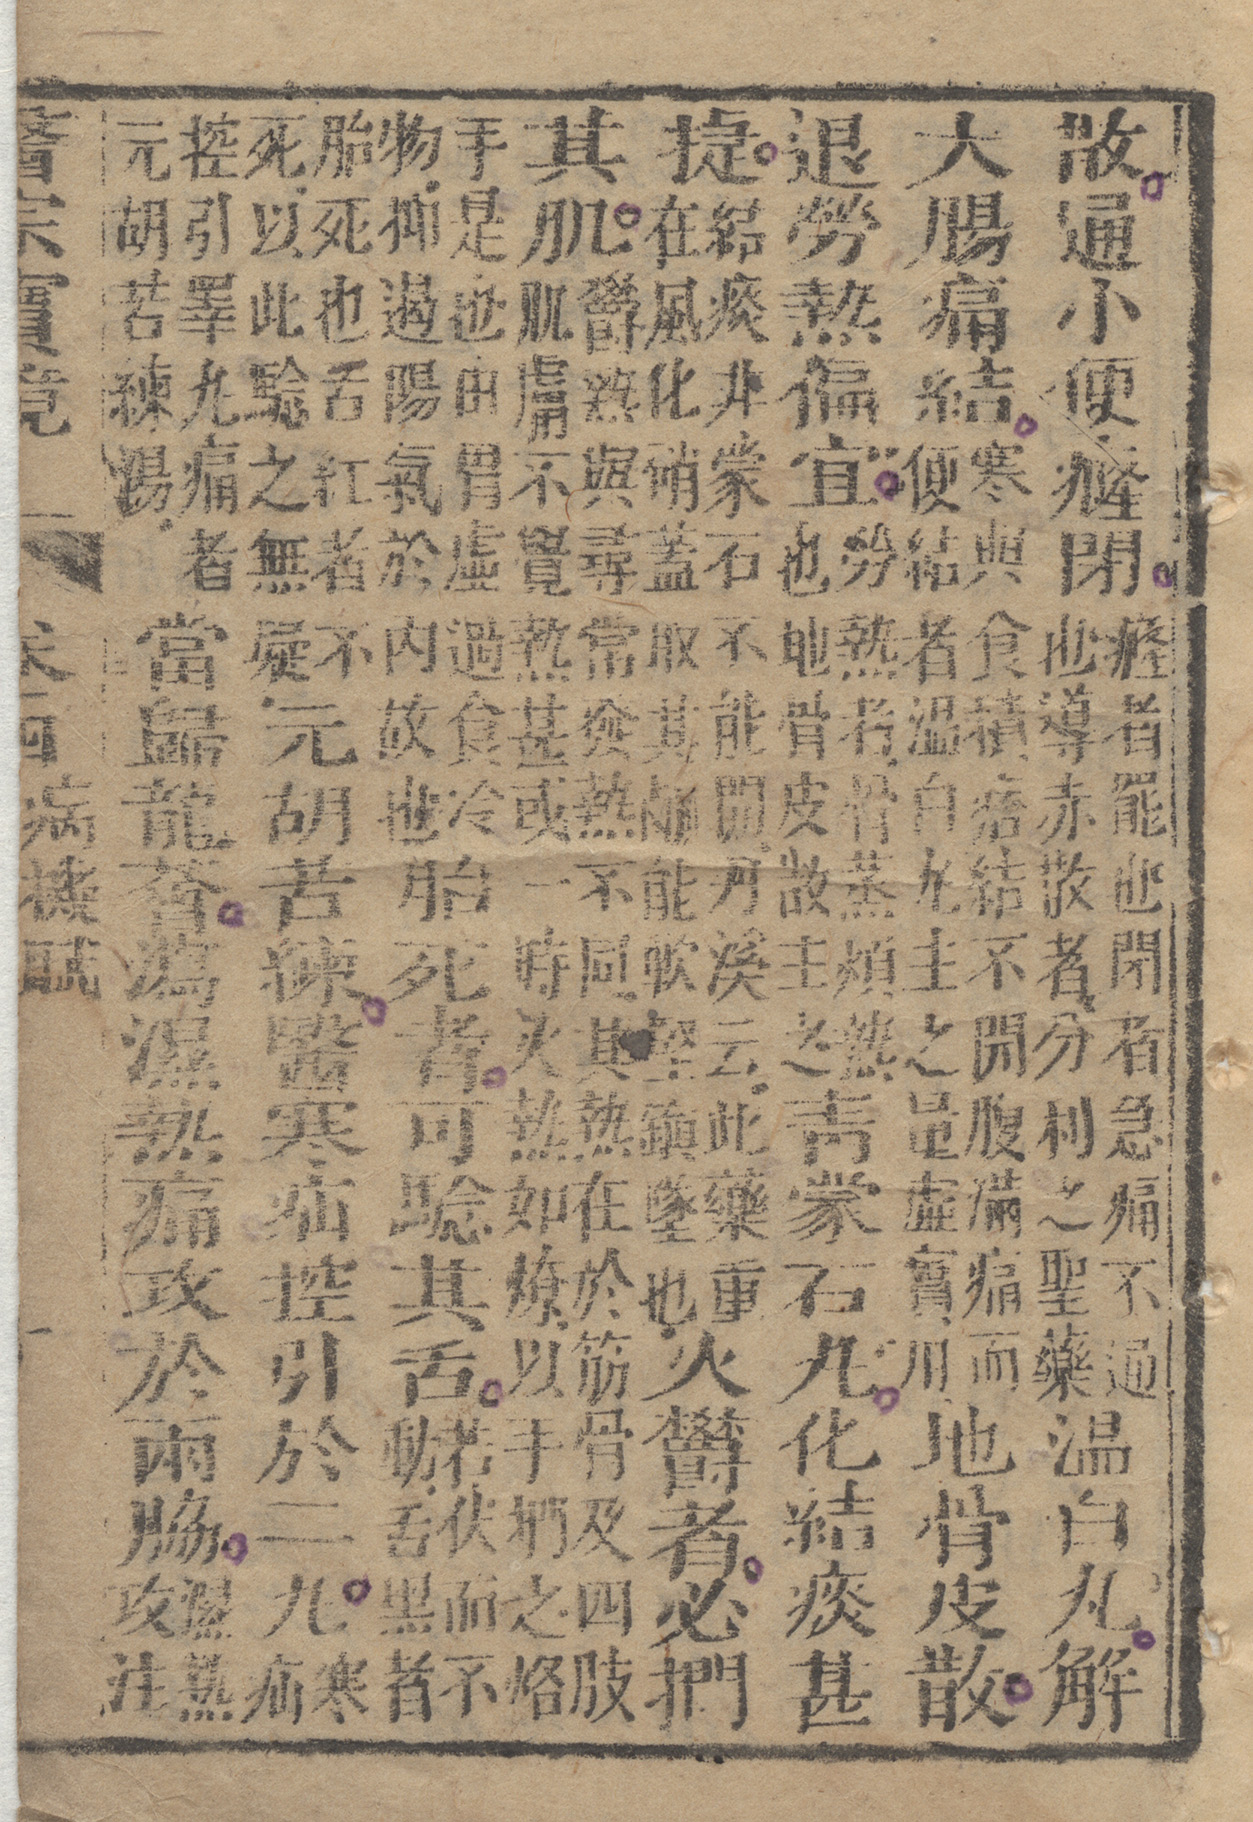 散通小便癃閉癃者罷也閉者急痛不通也導赤散者分利之聖藥温白丸解
大腸痛結寒與食積痞結不開腹滿痛而便結者温白丸主之量虛實用地骨皮散
退勞熱偏宜勞熱者骨蒸煩熱也地骨皮散主之青蒙石丸化結痰甚
捷結痰非蒙石不能開丹溪云此藥重在風化硝蓋取其鹹能軟堅鎮墜也火欝者必捫
其肌欝熱與尋常發熱不同其熱在於筋骨及四肢肌膚不覺熱甚或一時火熱如燎以手捫之烙
手是也由胃虛過食冷物抑遏陽氣於内故也胎死者可驗其舌若伏而不動舌黑者
胎死也舌紅者不死以此驗之無疑元胡苦練醫寒疝控引於二丸寒疝
控引睪丸痛者元胡苦練湯當歸龍薈瀉濕熱痛攻於兩脇濕熱攻注
醫宗寶鏡 卷四 病機賦 一